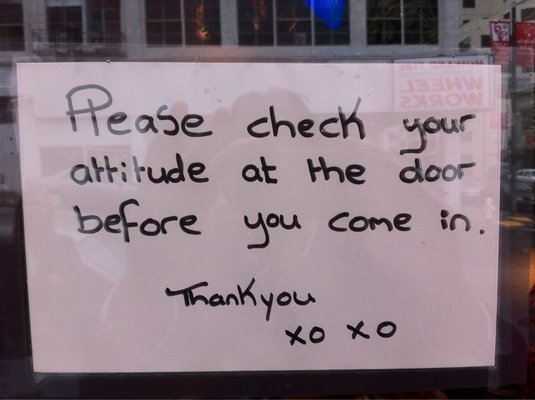 Please check your
attitude at the door
before you come in.
Thank you
xo xo
WHEEL
WORKS